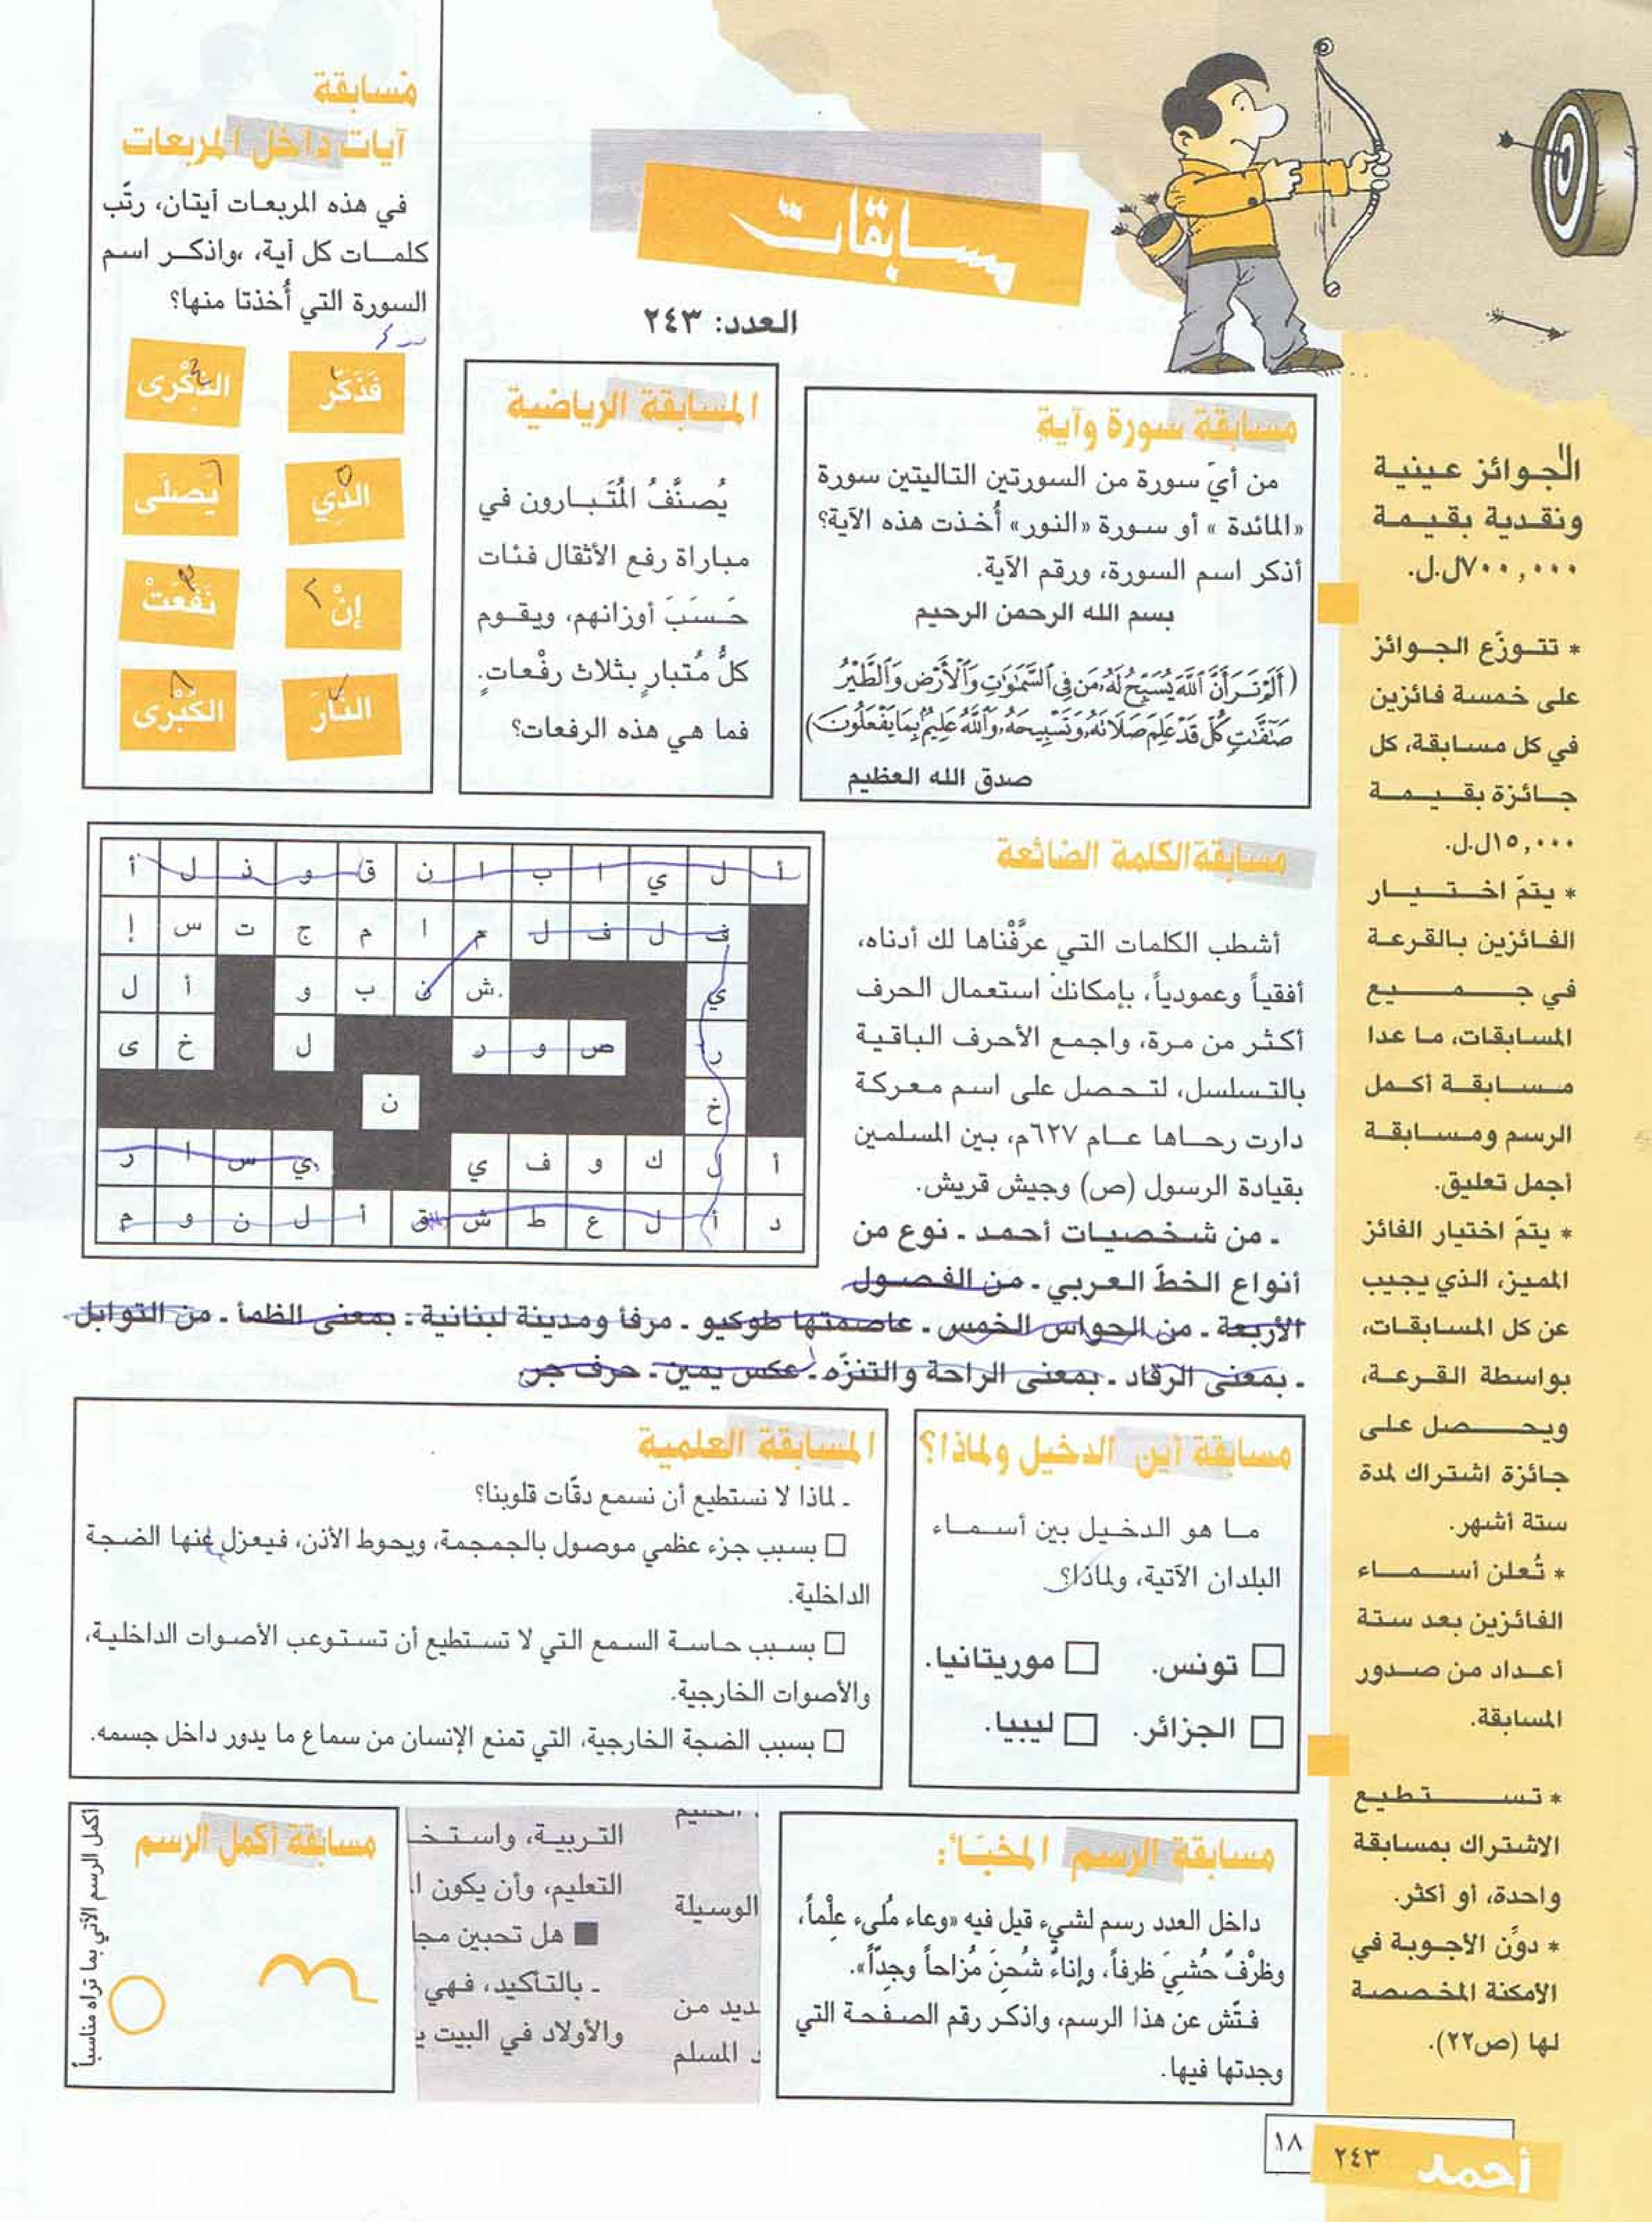 مسابقات
العدد: ٢٤٣
الجوائز عينية
ونقدية بقيمة
٧٠٠,٠٠٠ل.ل.
* تتوزّع الجوائز
على خمسة فائزين
في كل مسابقة، كل
جائزة بقيمة
١٥,٠٠٠ل.ل.
* يتمّ اختيار
الفائزين بالقرعة
في جميع
المسابقات، ما عدا
مسابقة أكمل
الرسم ومسابقة
أجمل تعليق.
* يتمّ اختيار الفائز
المميز، الذي يجيب
عن كل المسابقات،
بواسطة القرعة،
ويحصل على
جائزة اشتراك لمدة
ستة أشهر.
* تُعلن أسماء
الفائزين بعد ستة
أعداد من صدور
المسابقة.
* تستطيع
الاشتراك بمسابقة
واحدة، أو أكثر.
* دوّن الأجوبة في
الأمكنة المخصصة
لها (ص٢٢).
مسابقة سورة وآية
من أيّ سورة من السورتين التاليتين سورة
«المائدة» أو سورة «النور» أُخذت هذه الآية؟
أذكر اسم السورة، ورقم الآية.
بسم الله الرحمن الرحيم
(أَلَمْ تَرَ أَنَّ اللَّهَ يُسَبِّحُ لَهُ مَن فِي السَّمَوَتِ وَالْأَرْضِ وَالطَّيْرُ
صَفَّتٍ كُلٌّ قَدْ عَلِمَ صَلَاتَهُ وَتَسْبِيحَهُ وَاللَّهُ عَلِيمٌ بِمَا يَفْعَلُونَ)
صدق الله العظيم
المسابقة الرياضية
يُصنَّفُ المُتَبارون في
مباراة رفع الأثقال فئات
حَسَبَ أوزانهم، ويقوم
كلُّ مُتبارٍ بثلاث رفْعاتٍ.
فما هي هذه الرفعات؟
مسابقة
آيات داخل المربعات
في هذه المربعات آيتان، رتّب
كلمات كل آية، واذكر اسم
السورة التي أُخذتا منها؟
فَذَكِّر ١ الذِّكْرى ٤
الذي ٥ يَصلَى ٦
إنْ ٢ نَفَعَتْ ٣
النَّارَ ٧ الكُبْرى ٨
مسابقة الكلمة الضائعة
أشطب الكلمات التي عرَّفْناها لك أدناه،
أفقياً وعمودياً، بإمكانك استعمال الحرف
أكثر من مرة، واجمع الأحرف الباقية
بالتسلسل، لتحصل على اسم معركة
دارت رحاها عام ٦٢٧م، بين المسلمين
بقيادة الرسول (ص) وجيش قريش.
ـ من شخصيات أحمد ـ نوع من
أنواع الخطّ العربي ـ من الفصول
الأربعة ـ من الحواس الخمس ـ عاصمتها طوكيو ـ مرفأ ومدينة لبنانية ـ بمعنى الظمأ ـ من التوابل
ـ بمعنى الرقاد ـ بمعنى الراحة والتنزّه ـ عكس يمين ـ حرف جر
أ ل ي ا ب ا ن ق و ذ ل أ
ف ل ف ل م ا م ج ت س إ
ي ش ن ب و أ ل
ر ص و ر ل خ ى
خ ن
أ ل ك و ف ي ي س ا ر
د أ ل ع ط ش ق أ ل ن و م
مسابقة أين الدخيل ولماذا؟
ما هو الدخيل بين أسماء
البلدان الآتية، ولماذا؟
تونس. موريتانيا.
الجزائر. ليبيا.
المسابقة العلمية
ـ لماذا لا نستطيع أن نسمع دقّات قلوبنا؟
بسبب جزء عظمي موصول بالجمجمة، ويحوط الأذن، فيعزل عنها الضجة
الداخلية.
بسبب حاسة السمع التي لا تستطيع أن تستوعب الأصوات الداخلية،
والأصوات الخارجية.
بسبب الضجة الخارجية، التي تمنع الإنسان من سماع ما يدور داخل جسمه.
مسابقة الرسم المخبّأ:
داخل العدد رسم لشيء قيل فيه «وعاء مُلىء علْماً،
وظرْفٌ حُشيَ ظرفاً، وإناءٌ شُحنَ مُزاحاً وجدّاً».
فتّش عن هذا الرسم، واذكر رقم الصفحة التي
وجدتها فيها.
الوسيلة
ديد من
المسلم
التربية، واستخـ
التعليم، وأن يكون ا
هل تحبين مجـ
ـ بالتأكيد، فهي
والأولاد في البيت يـ
مسابقة أكمل الرسم
أكمل الرسم الآتي بما تراه مناسباً
١٨
٢٤٣
أحمد